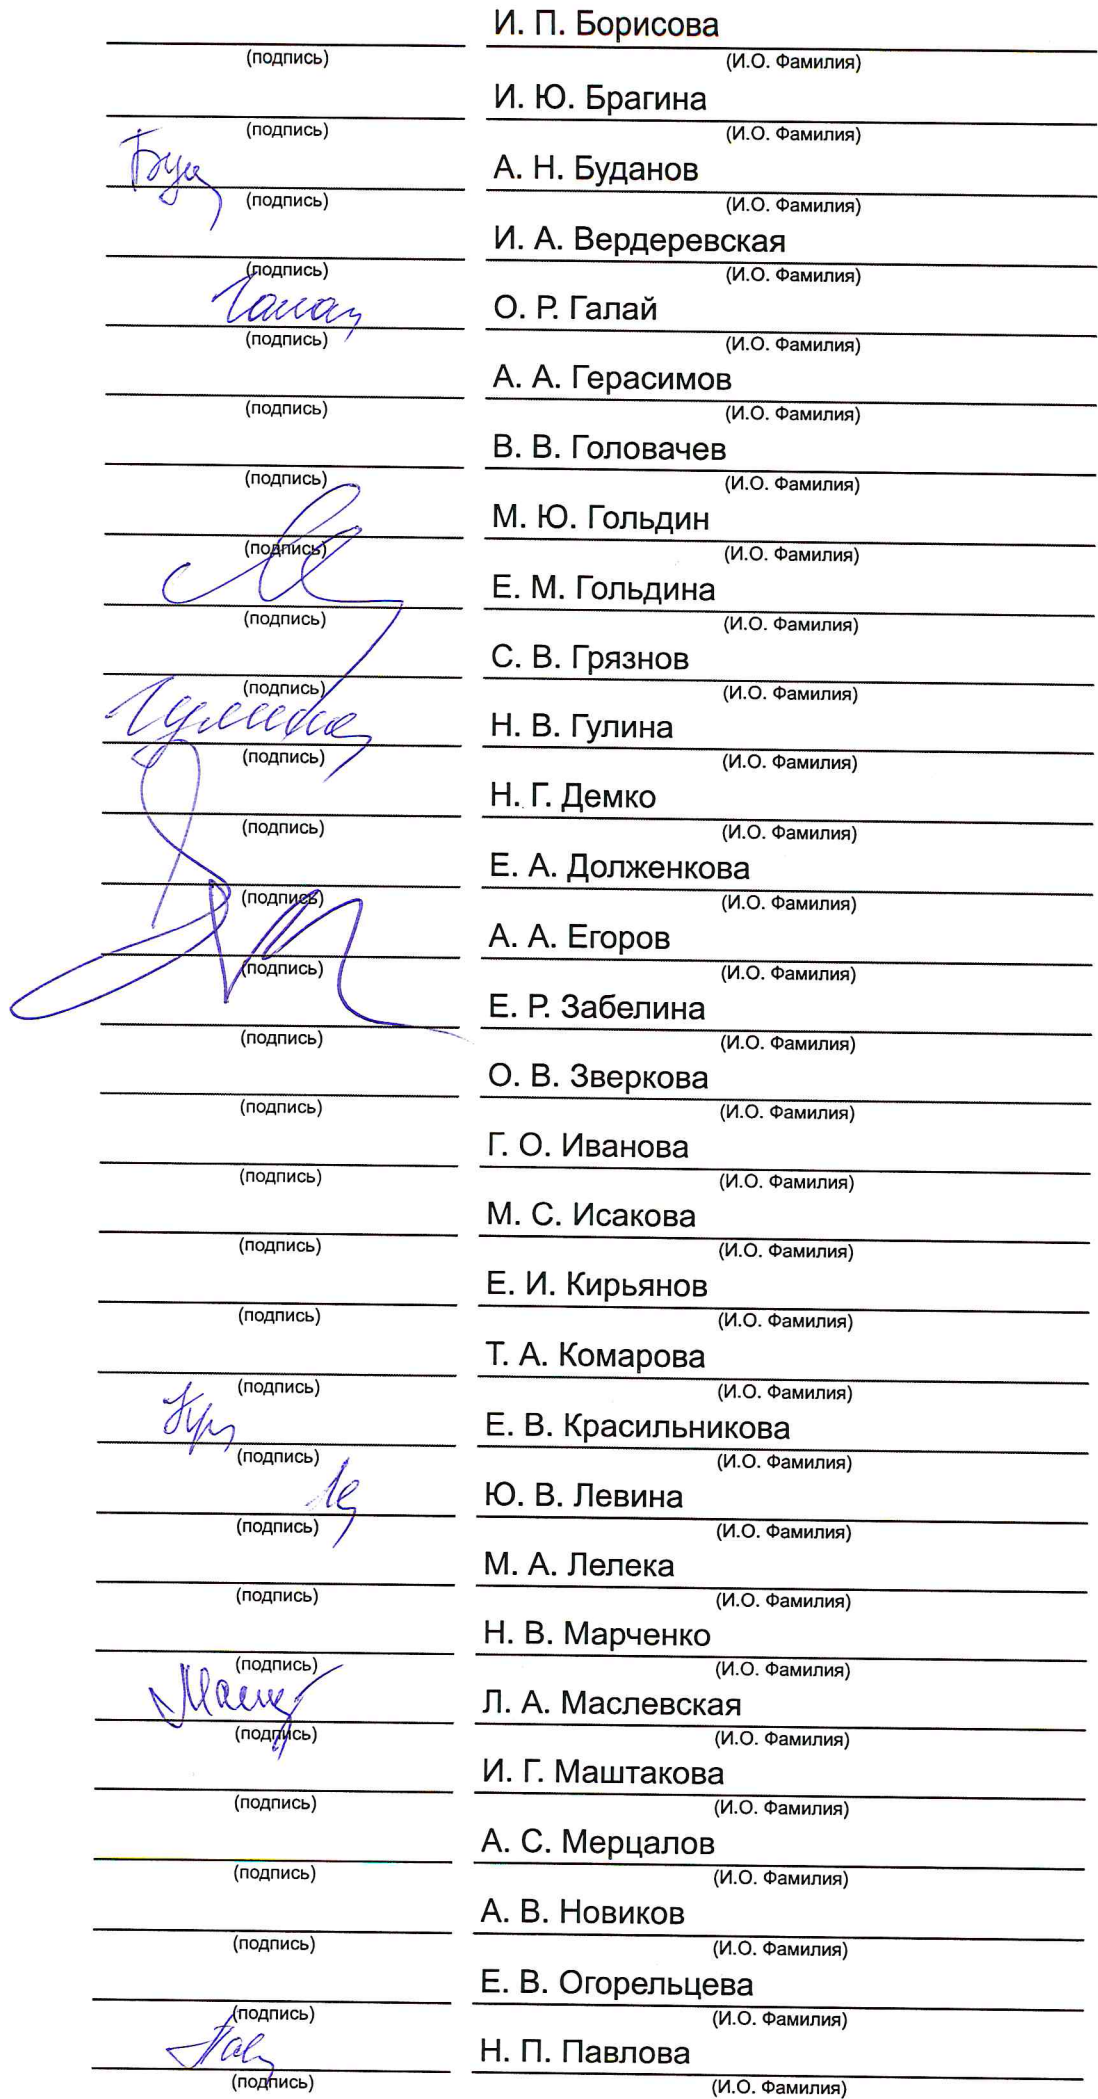 И. П. Борисова
(подпись) (И.О. Фамилия)
И. Ю. Брагина
(подпись) (И.О. Фамилия)
А. Н. Буданов
(подпись) (И.О. Фамилия)
И. А. Вердеревская
(подпись) (И.О. Фамилия)
О. Р. Галай
(подпись) (И.О. Фамилия)
А. А. Герасимов
(подпись) (И.О. Фамилия)
В. В. Головачев
(подпись) (И.О. Фамилия)
М. Ю. Гольдин
(подпись) (И.О. Фамилия)
Е. М. Гольдина
(подпись) (И.О. Фамилия)
С. В. Грязнов
(подпись) (И.О. Фамилия)
Н. В. Гулина
(подпись) (И.О. Фамилия)
Н. Г. Демко
(подпись) (И.О. Фамилия)
Е. А. Долженкова
(подпись) (И.О. Фамилия)
А. А. Егоров
(подпись) (И.О. Фамилия)
Е. Р. Забелина
(подпись) (И.О. Фамилия)
О. В. Зверкова
(подпись) (И.О. Фамилия)
Г. О. Иванова
(подпись) (И.О. Фамилия)
М. С. Исакова
(подпись) (И.О. Фамилия)
Е. И. Кирьянов
(подпись) (И.О. Фамилия)
Т. А. Комарова
(подпись) (И.О. Фамилия)
Е. В. Красильникова
(подпись) (И.О. Фамилия)
Ю. В. Левина
(подпись) (И.О. Фамилия)
М. А. Лелека
(подпись) (И.О. Фамилия)
Н. В. Марченко
(подпись) (И.О. Фамилия)
Л. А. Маслевская
(подпись) (И.О. Фамилия)
И. Г. Маштакова
(подпись) (И.О. Фамилия)
А. С. Мерцалов
(подпись) (И.О. Фамилия)
А. В. Новиков
(подпись) (И.О. Фамилия)
Е. В. Огорельцева
(подпись) (И.О. Фамилия)
Н. П. Павлова
(подпись) (И.О. Фамилия)